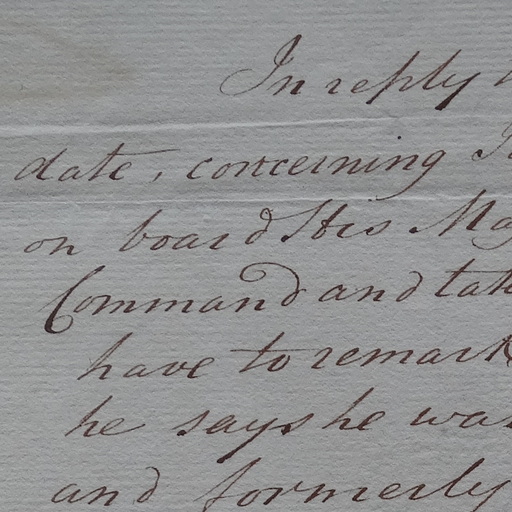 In reply
date, concerning
on board His
Command and
have to remark
he says he
and formerly